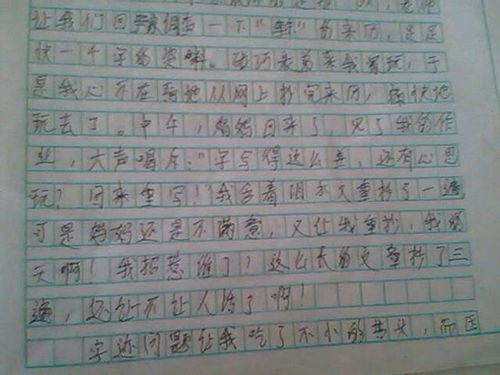 让我们回家调查一下"鲜"的来历，是足
快一千字的资料。碰巧表弟来我家玩，于
是我心不在焉地从网上抄完来历，飞快地
玩去了。中午，妈妈回来了，见了我的作
业，大声喝斥："字写得这么差，还有心思
玩？回来重写！"我含着泪水又重抄了一遍，
可是妈妈还是不满意，又让我重抄，我的
天啊！我招惹谁了！这么长的文章抄了三
遍，还让不让人活了啊！
字迹问题让我吃了不小的苦头，而且